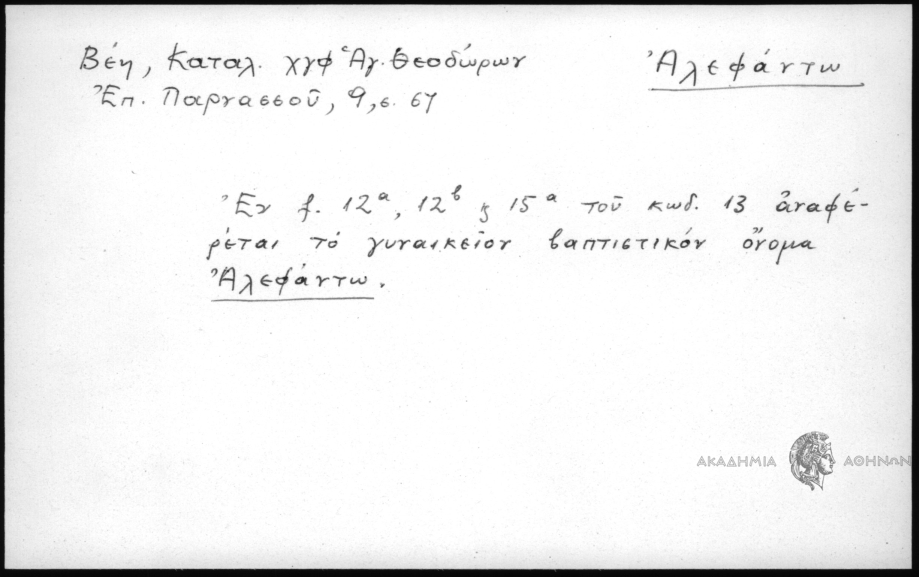 Βέη, Καταλ. χγφ Ἁγ. Θεοδώρων
Ἀλεφάντω
Ἐπ. Παρνασσοῦ, 9, σ. 67
Ἐν f. 12ᵃ, 12ᵇ ϗ 15ᵃ τοῦ κωδ. 13 ἀναφέ-
ρεται τὸ γυναικεῖον βαπτιστικόν ὄνομα
Ἀλεφάντω.
ΑΚΑΔΗΜΙΑ ΑΘΗΝΩΝ